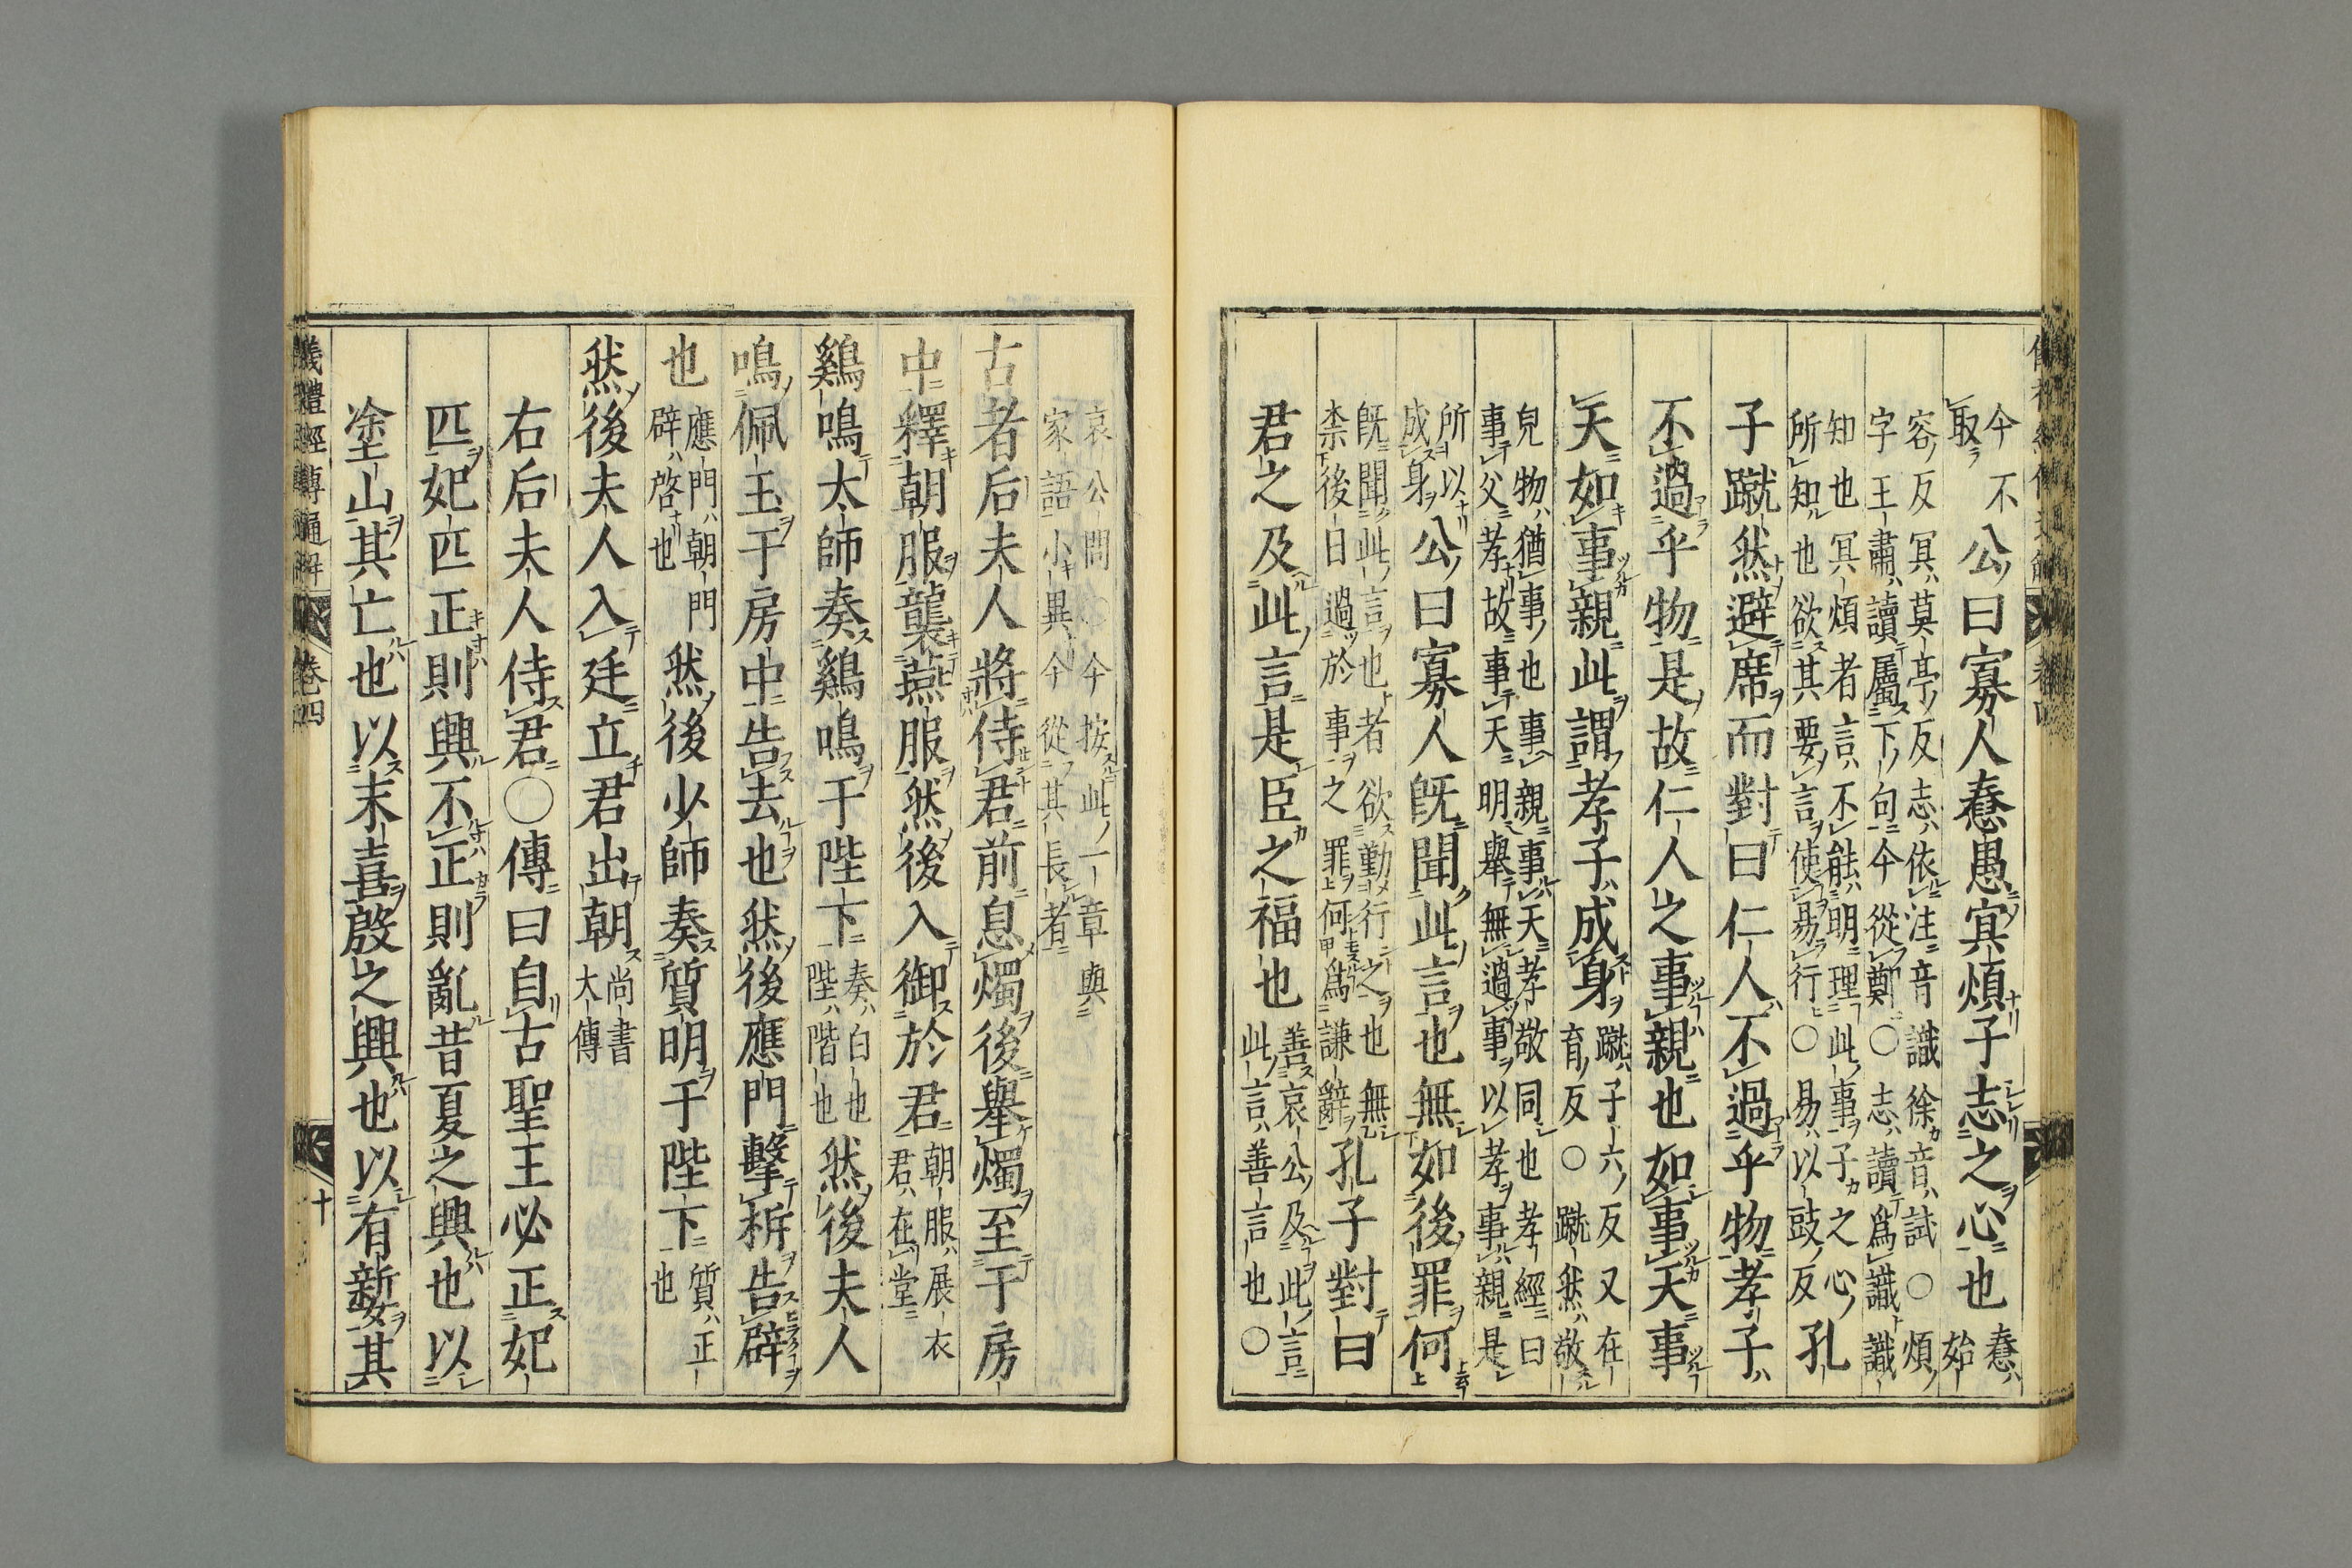 今不取公曰寡人憃愚冥煩子志之心也憃始
容反冥莫亭反志依注音識徐音試○煩字王肅讀屬下句今從鄭○志讀爲識識
知也冥煩者言不能明理此事子之心所知也欲其要言使易行○易以豉反孔
子蹴然避席而對曰仁人不過乎物孝子
不過乎物是故仁人之事親也如事天事
天如事親此謂孝子成身蹴子六反又在育反○蹴然敬
皃物猶事也事親事天孝敬同也孝經曰事父孝故事天明舉無過事以孝事親是
所以成身公曰寡人既聞此言也無如後罪何
既聞此言也者欲勤行之也無柰後日過於事之罪何爲謙辭孔子對曰
君之及此言是臣之福也善哀公及此言此言善言也○
哀公問○今按此一章與家語小異今從其長者
古者后夫人將侍君前息燭後舉燭至于房
中釋朝服襲燕服然後入御於君朝服展衣君在堂
鷄鳴太師奏鷄鳴于陛下奏白也陛階也然後夫人
鳴佩玉于房中告去也然後應門擊柝告辟
也應門朝門辟啓也然後少師奏質明于陛下質正也
然後夫人入廷立君出朝尚書大傳
右后夫人侍君○傳曰自古聖王必正妃
匹妃匹正則興不正則亂昔夏之興也以
塗山其亡也以末喜殷之興也以有㜪其
儀禮經傳通解 卷四 十